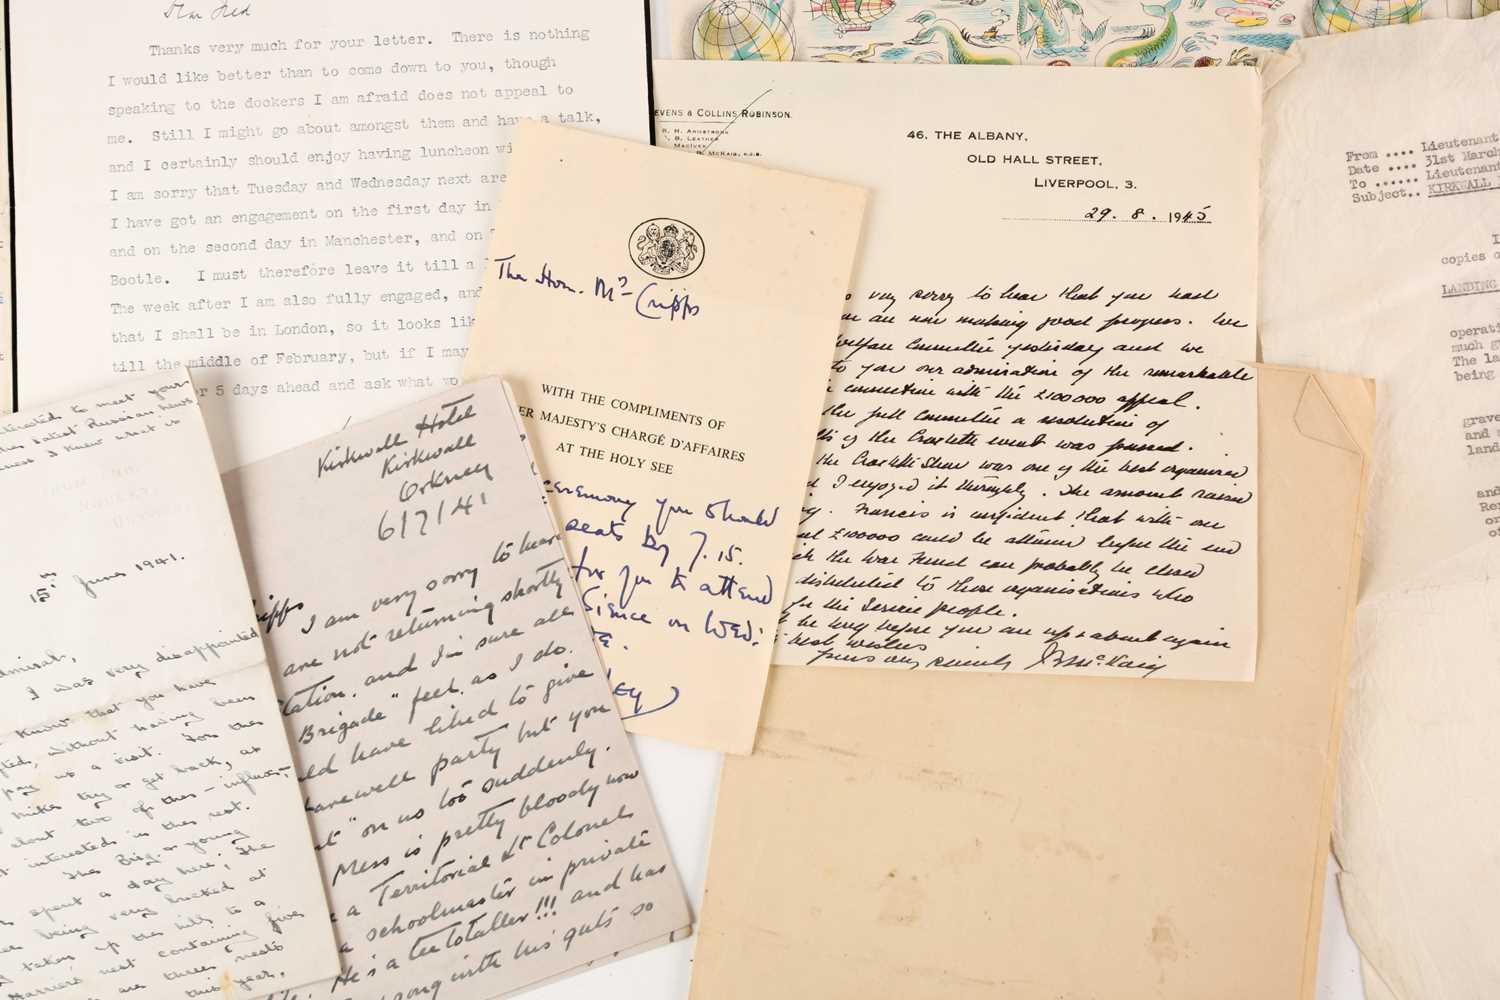 Dear Fred
Thanks very much for your letter. There is nothing
I would like better than to come down to you, though
speaking to the dockers I am afraid does not appeal to
me. Still I might go about amongst them and have a talk,
and I certainly should enjoy having luncheon wi
I am sorry that Tuesday and Wednesday next are
I have got an engagement on the first day in
and on the second day in Manchester, and on
Bootle. I must therefore leave it till a
The week after I am also fully engaged, and
that I shall be in London, so it looks li
till the middle of February, but if I may
or 5 days ahead and ask what wo
EVENS & COLLINS ROBINSON.
R. H. ARMSTRONG
B. LEATHER
MACIVER
MCKAIG, K.C.B.
46, THE ALBANY,
OLD HALL STREET,
LIVERPOOL, 3.
29. 8. 1945
very sorry to hear that you had
are now making good progress. We
Welfare Committee yesterday and we
to you our admiration of the remarkable
connection with the £100000 appeal.
the full Committee a resolution of
of the Crockett event was passed.
the Crockett Show was one of the best organised
I enjoyed it thoroughly. The amount raised
Francis is confident that with our
£100000 could be attained before the end
the War Fund can probably be closed
distributed to those organisations who
for the Service people.
be long before you are up & about again
best wishes
yours very sincerely J B McKaig
The Hon. Mrs Cripps
WITH THE COMPLIMENTS OF
ER MAJESTY'S CHARGÉ D'AFFAIRES
AT THE HOLY SEE
ceremony you should
seats by 7.15.
for you to attend
on Wed:
From .... Lieutenant
Date .... 31st March
To ...... Lieutenant
Subject.. KIRKWALL
I
copies o
LANDING
operati
much g
The la
being
grave
and
land
and
Re
or
of
Kirkwall Hotel
Kirkwall
Orkney
6/7/41
ripps
I am very sorry to hear
are not returning shortly
tation. and I'm sure all
Brigade" feel as I do.
ld have liked to give
farewell party but you
" on us too suddenly.
Mess is pretty bloody now
a Territorial Lt Colonel
a schoolmaster in private
He's a teetotaller!!! and has
ong with his guts so
interested to meet your
latest Russian news
I knew what is
15th June 1941.
dmiral,
I was very disappointed
know that you have
fted, without having been
pay us a visit. For the
try or get back, as
about two of them - influen
interested in the rest.
The Brig. or young
spent a day here; the
being very bucked at
taken up the hills to a
Harrier's nest containing five
are three nests
this year,